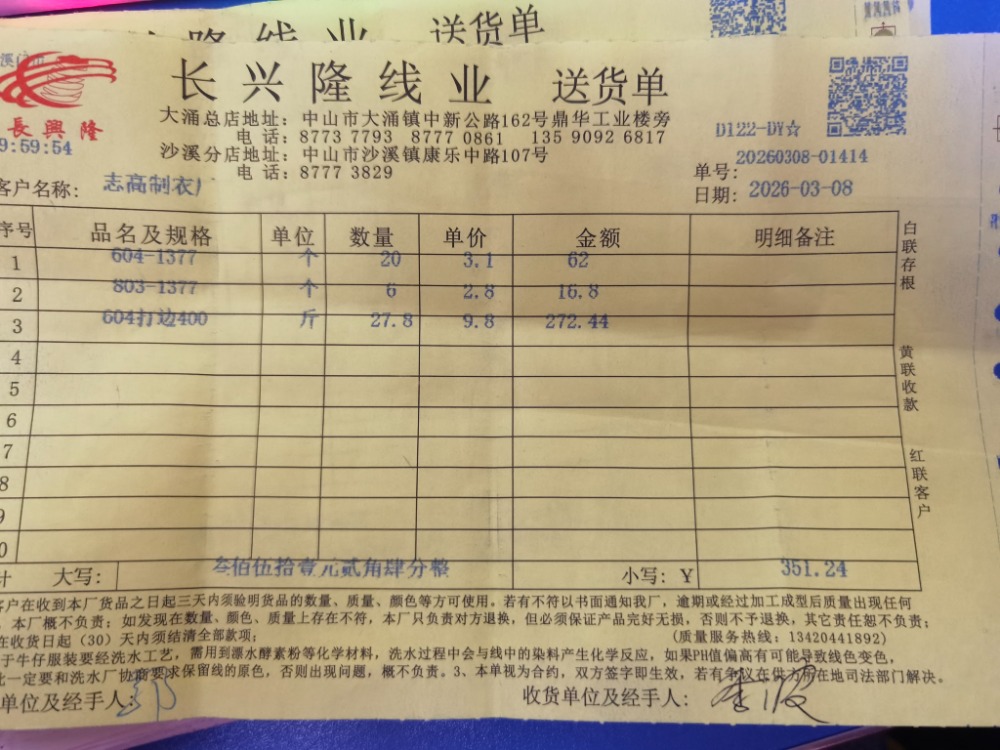 隆线业 送货单
长兴隆线业 送货单
長興隆
大涌总店地址：中山市大涌镇中新公路162号鼎华工业楼旁
电 话：8773 7793 8777 0861 135 9092 6817
沙溪分店地址：中山市沙溪镇康乐中路107号
电 话：8777 3829
D122-DY☆
9:59:54
单号：20260308-01414
客户名称：志高制衣厂
日期：2026-03-08
序号 品名及规格 单位 数量 单价 金额 明细备注
1 604-1377 个 20 3.1 62
2 803-1377 个 6 2.8 16.8
3 604打边400 斤 27.8 9.8 272.44
4
5
6
7
8
9
0
计 大写：叁佰伍拾壹元贰角肆分整 小写：￥ 351.24
白联存根
黄联收款
红联客户
客户在收到本厂货品之日起三天内须验明货品的数量、质量、颜色等方可使用。若有不符以书面通知我厂，逾期或经过加工成型后质量出现任何
，本厂概不负责；如发现在数量、颜色、质量上存在不符，本厂只负责对方退换，但必须保证产品完好无损，否则不予退换，其它责任恕不负责；
在收货日起（30）天内须结清全部款项； (质量服务热线：13420441892)
于牛仔服装要经洗水工艺，需用到漂水酵素粉等化学材料，洗水过程中会与线中的染料产生化学反应，如果PH值偏高有可能导致线色变色，
此一定要和洗水厂协商要求保留线的原色，否则出现问题，概不负责。3、本单视为合约，双方签字即生效，若有争议在供方所在地司法部门解决。
单位及经手人： 收货单位及经手人：